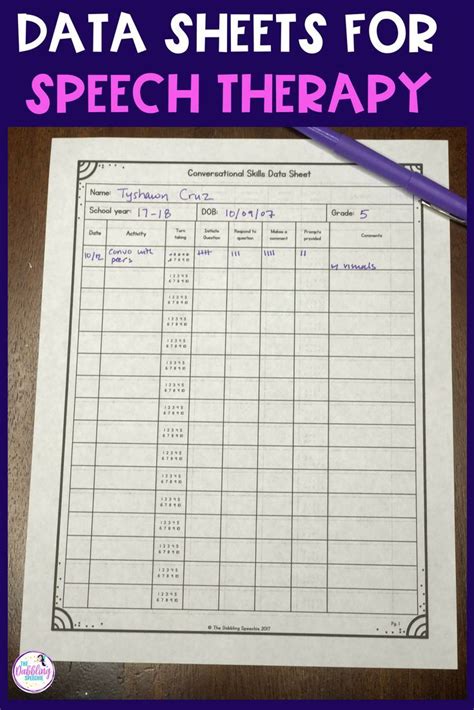 DATA SHEETS FOR
SPEECH THERAPY
Conversational Skills Data Sheet
Name: Tyshawn Cruz
School year: 17-18 DOB: 10/09/07 Grade: 5
Date Activity Turn taking Initiate Question Respond to question Makes a comment Prompts provided Comments
10/12 Convo with peers
visuals
1 2 3 4 5
6 7 8 9 10
1 2 3 4 5
6 7 8 9 10
1 2 3 4 5
6 7 8 9 10
1 2 3 4 5
6 7 8 9 10
1 2 3 4 5
6 7 8 9 10
1 2 3 4 5
6 7 8 9 10
1 2 3 4 5
6 7 8 9 10
1 2 3 4 5
6 7 8 9 10
1 2 3 4 5
6 7 8 9 10
1 2 3 4 5
6 7 8 9 10
1 2 3 4 5
6 7 8 9 10
1 2 3 4 5
6 7 8 9 10
1 2 3 4 5
6 7 8 9 10
1 2 3 4 5
6 7 8 9 10
© The Dabbling Speechie 2017
Pg. 1
THE
Dabbling
SPEECHIE